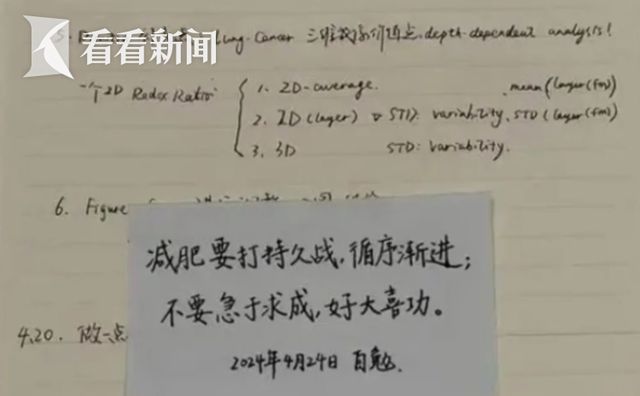 看看新闻
Lung-Cancer 三维 depth-dependent analysis!
一个 2D Redox Ratio
1. 2D-average. mean(layer(fm))
2. 2D(layer) STD: variability. STD(layer(fm))
3. 3D STD: variability.
6. Figure
减肥要打持久战,循序渐进;
不要急于求成,好大喜功。
4.20. 做一点
2024年4月24日 自勉.